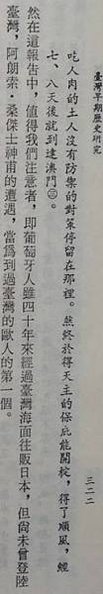 臺灣早期歷史研究
三二二
吃人肉的土人沒有防禦的對策停留在那裡。然終於得天主的保庇能開椗，得了順風，經
七、八天後就到達澳門㊂。
然在這報告中，值得我們注意者，即葡萄牙人雖四十年來經過臺灣海面往販日本，但尚未曾登陸
臺灣，阿朗素·桑傑士神甫的遭遇，當爲到過臺灣的歐人的第一個。